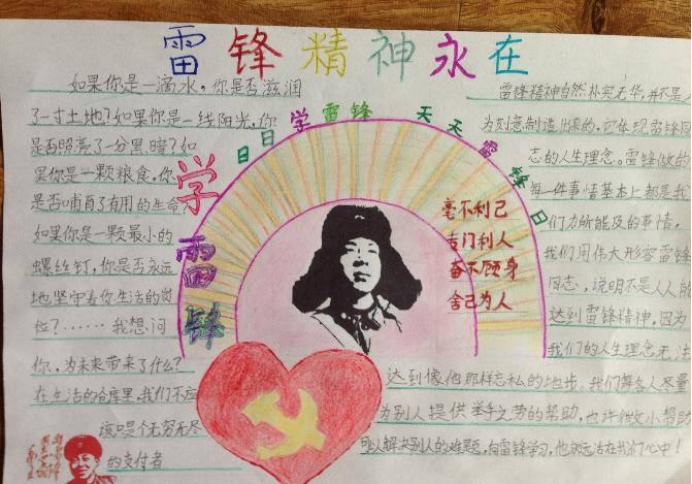 雷锋精神永在
如果你是一滴水，你是否滋润
了一寸土地？如果你是一线阳光，你
是否照亮了一分黑暗？如
果你是一颗粮食，你
是否哺育了有用的生命
如果你是一颗最小的
螺丝钉，你是否永远
地坚守着你生活的岗
位？……我想问
你，为未来带来了什么？
在生活的仓库里，我们不应
该只是个无穷无尽
的支付者
学雷锋
日日学雷锋 天天雷锋日
毫不利己
专门利人
奋不顾身
舍己为人
雷锋精神自然朴实无华，并不是人
为刻意制造出来的，它体现雷锋同
志的人生理念。雷锋做的
每一件事情基本上都是我
们力所能及的事情，
我们用伟大形容雷锋
同志，说明不是人人能
达到雷锋精神，因为
我们的人生理念无法
达到像他那样忘私的地步。我们每名人尽量
为别人提供举手之劳的帮助，也许做小帮助
可以解决别人的难题，向雷锋学习，他永远活在我们心中！